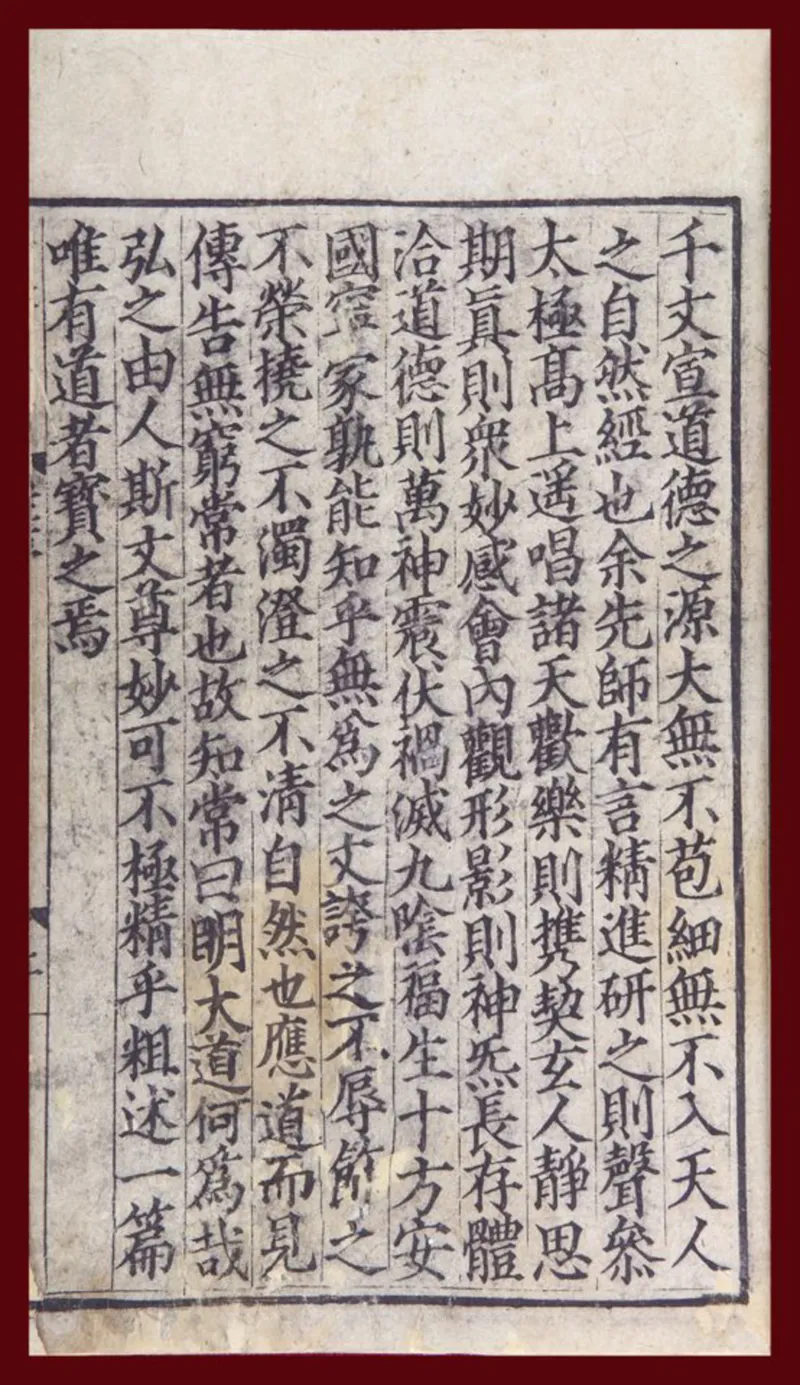 千文宣道德之源大無不苞細無不入天人
之自然經也余先師有言精進研之則聲叅
太極髙上遥唱諸天歡樂則携契玄人靜思
期眞則衆妙感會內觀形影則神炁長存體
洽道德則萬神震伏禍滅九隂福生十方安
國寧家孰能知乎無爲之文誇之不辱飾之
不榮撓之不濁澄之不清自然也應道而見
傳告無窮常者也故知常曰明大道何爲哉
弘之由人斯文尊妙可不極精乎粗述一篇
唯有道者寳之焉